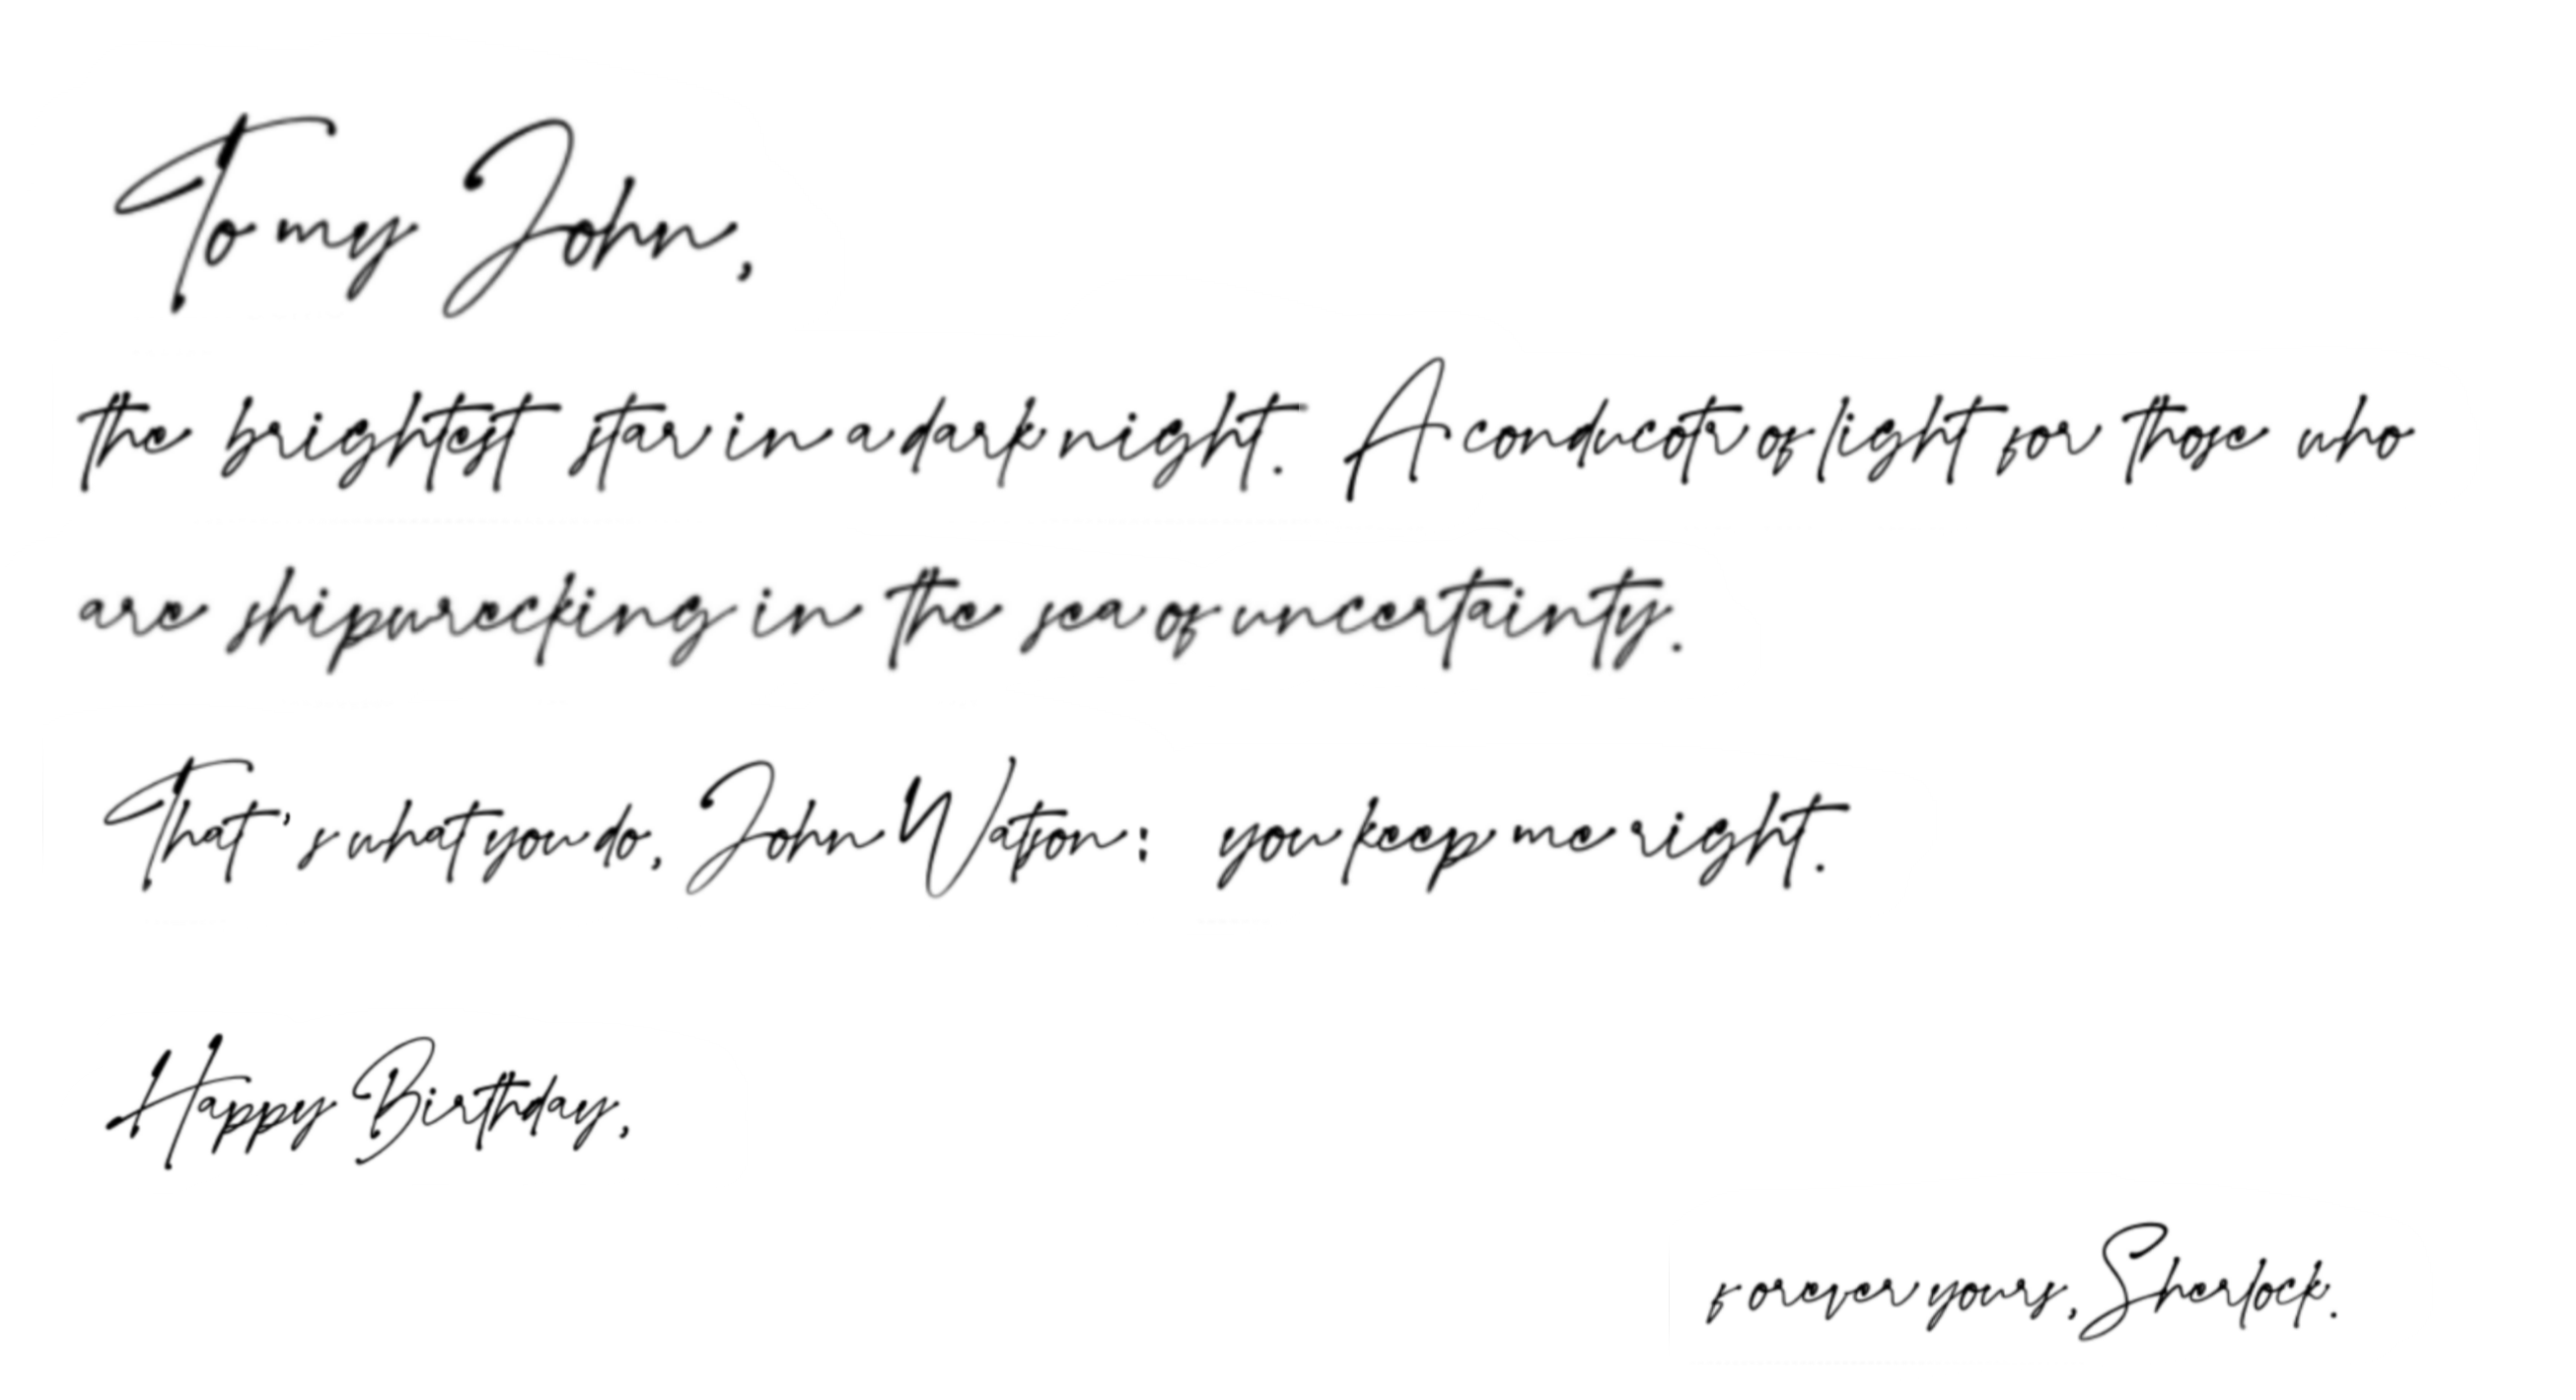 To my John,
the brightest star in a dark night. A conducotr of light for those who
are shipwrecking in the sea of uncertainty.
That's what you do, John Watson: you keep me right.
Happy Birthday,
forever yours, Sherlock.